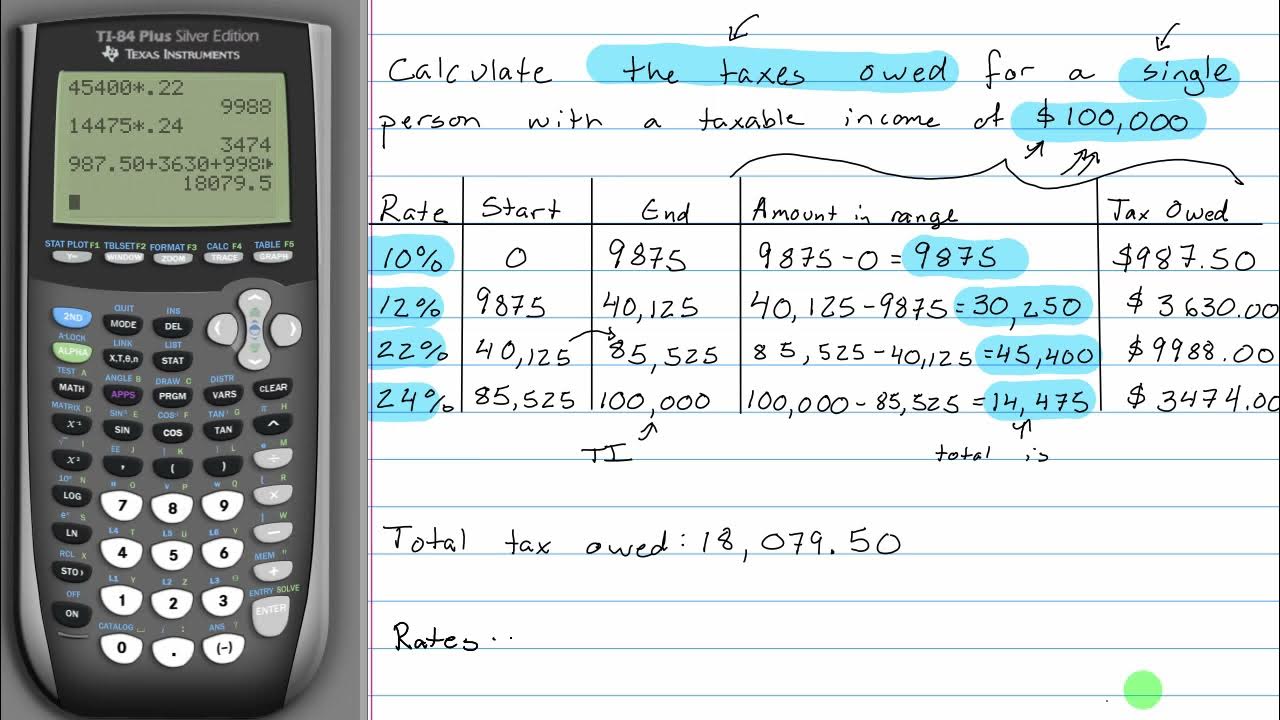 TI-84 Plus Silver Edition
TEXAS INSTRUMENTS
45400*.22
9988
14475*.24
3474
987.50+3630+998
18079.5
STAT PLOT F1 TBLSET F2 FORMAT F3 CALC F4 TABLE F5
Y= WINDOW ZOOM TRACE GRAPH
QUIT INS
2ND MODE DEL
A-LOCK LINK LIST
ALPHA X,T,θ,n STAT
TEST A ANGLE B DRAW C DISTR
MATH APPS PRGM VARS CLEAR
MATRIX D SIN⁻¹ E COS⁻¹ F TAN⁻¹ G π H
X⁻¹ SIN COS TAN ^
√ I EE J { K } L e M
X² , ( ) ÷
10ˣ N u O v P w Q [ R
LOG 7 8 9 ×
eˣ S L4 T L5 U L6 V ] W
LN 4 5 6 −
RCL X L1 Y L2 Z L3 θ MEM "
STO› 1 2 3 +
OFF CATALOG i : ANS ? ENTRY SOLVE
ON 0 . (-) ENTER
Calculate the taxes owed for a single
person with a taxable income of $100,000
Rate Start End Amount in range Tax Owed
10% 0 9875 9875-0=9875 $987.50
12% 9875 40,125 40,125-9875=30,250 $3630.00
22% 40,125 85,525 85,525-40,125=45,400 $9988.00
24% 85,525 100,000 100,000-85,525=14,475 $3474.00
TI total is
Total tax owed: 18,079.50
Rates..